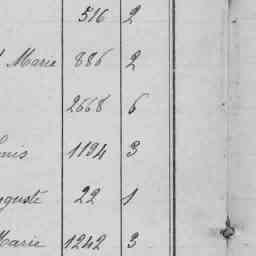 516 2
Marie 886 2
2668 6
1194 3
22 1
Marie 1242 3